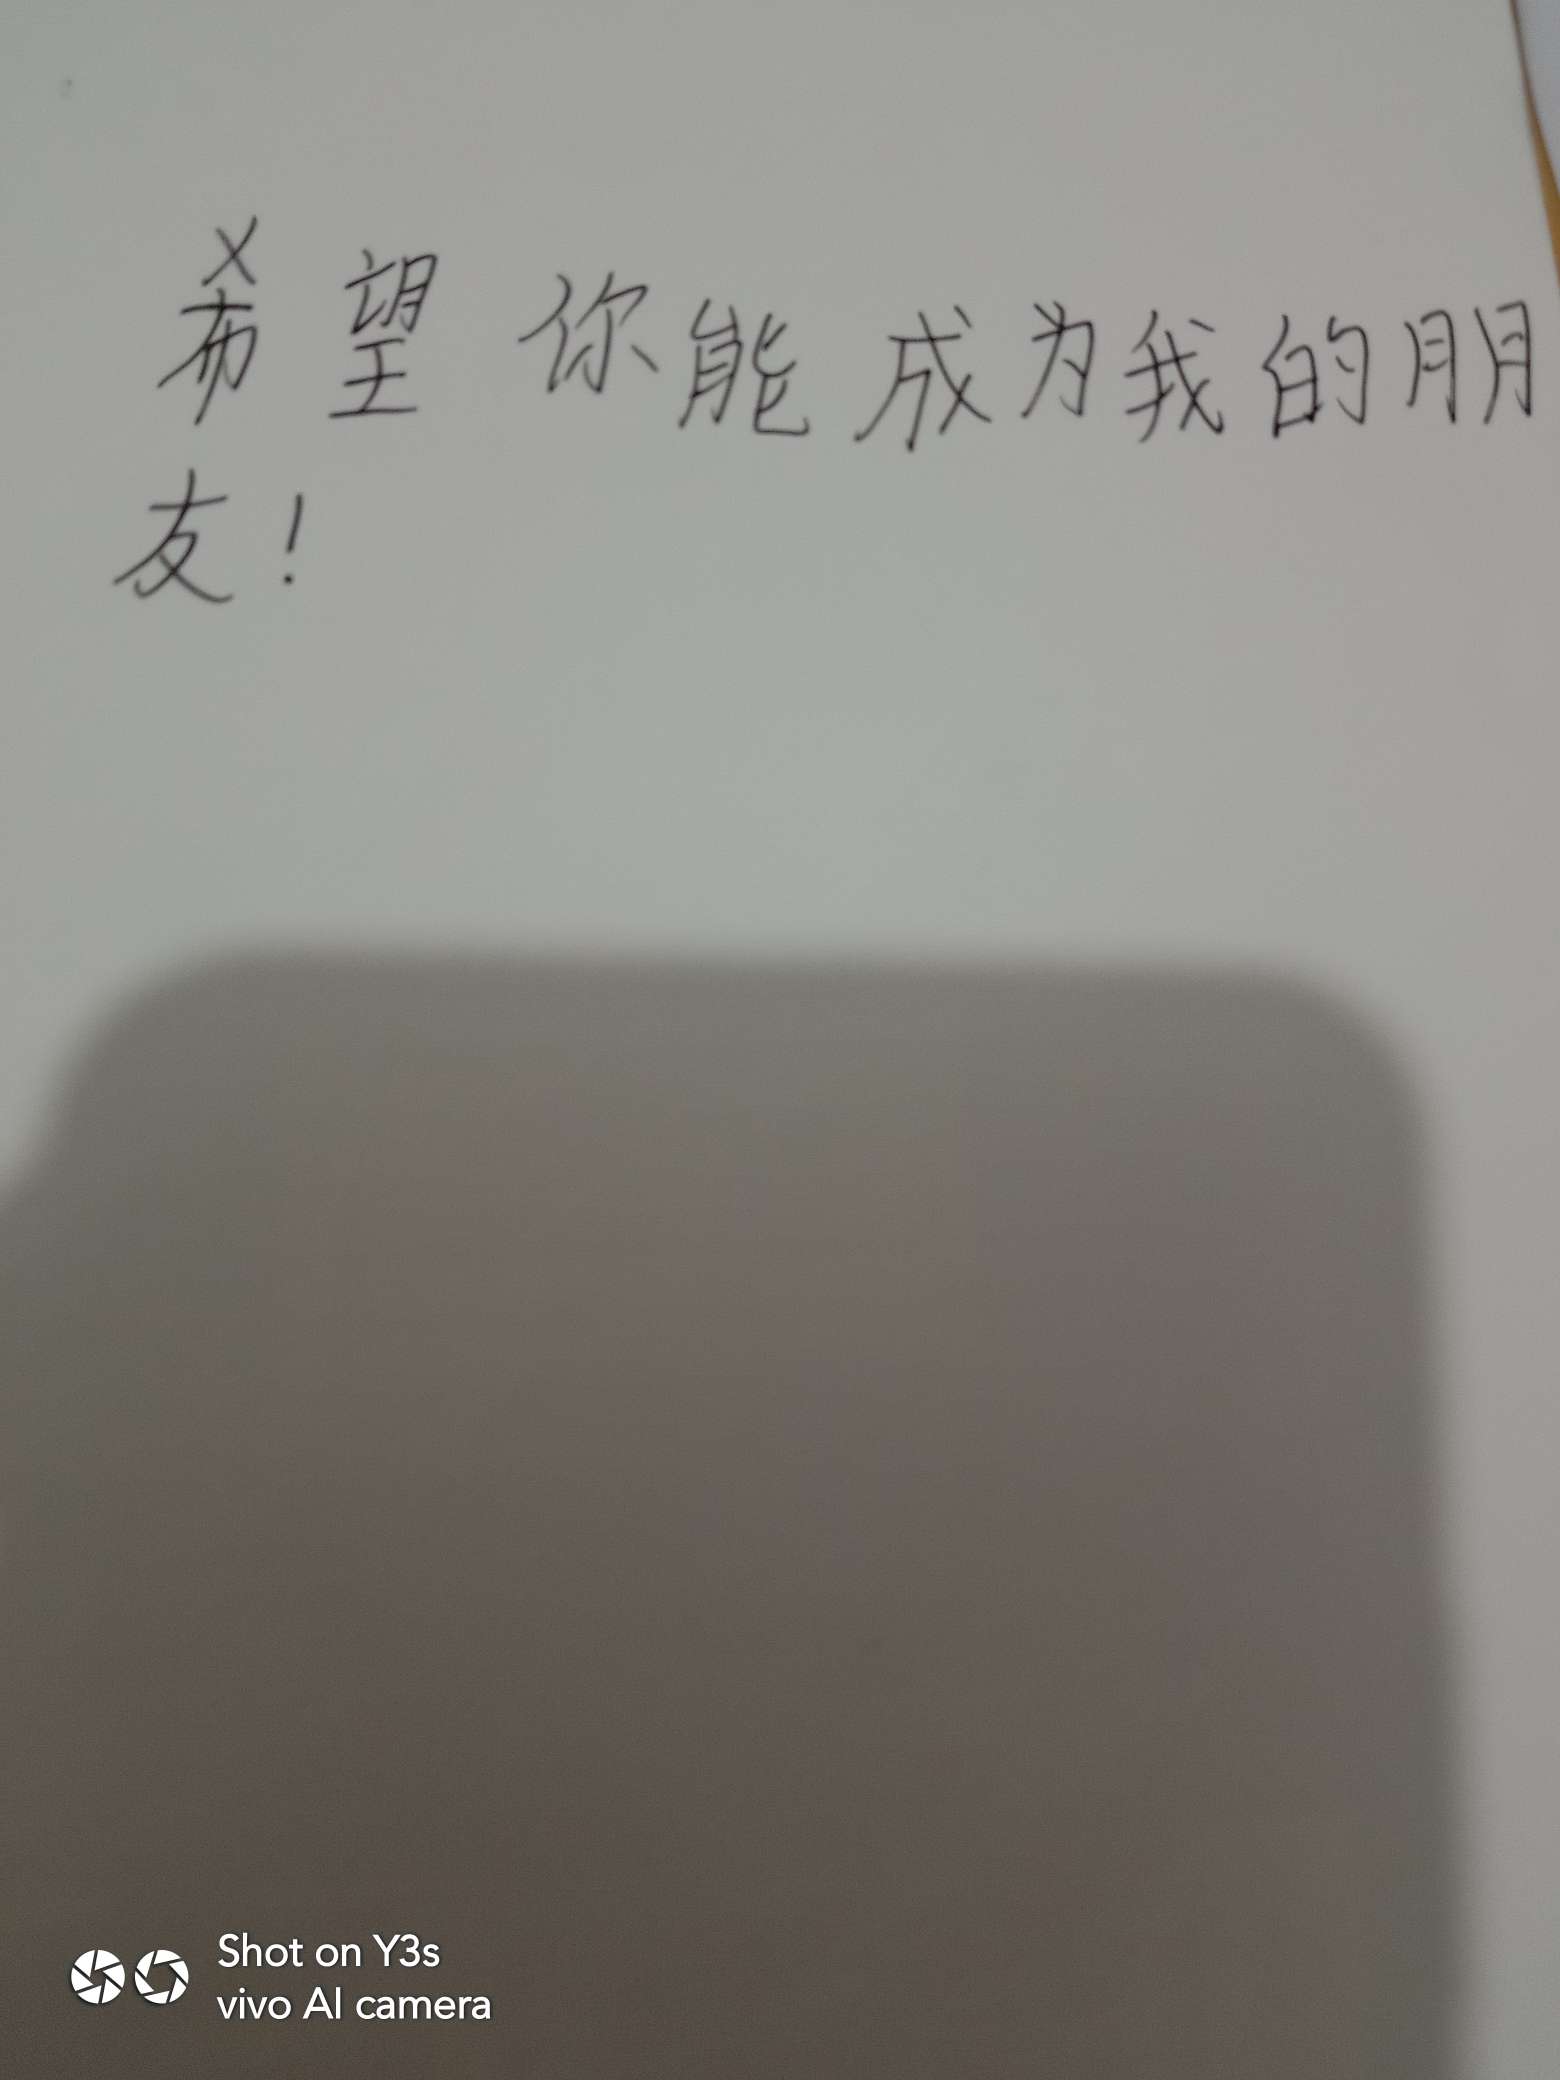 希望你能成为我的朋
友！
Shot on Y3s
vivo AI camera